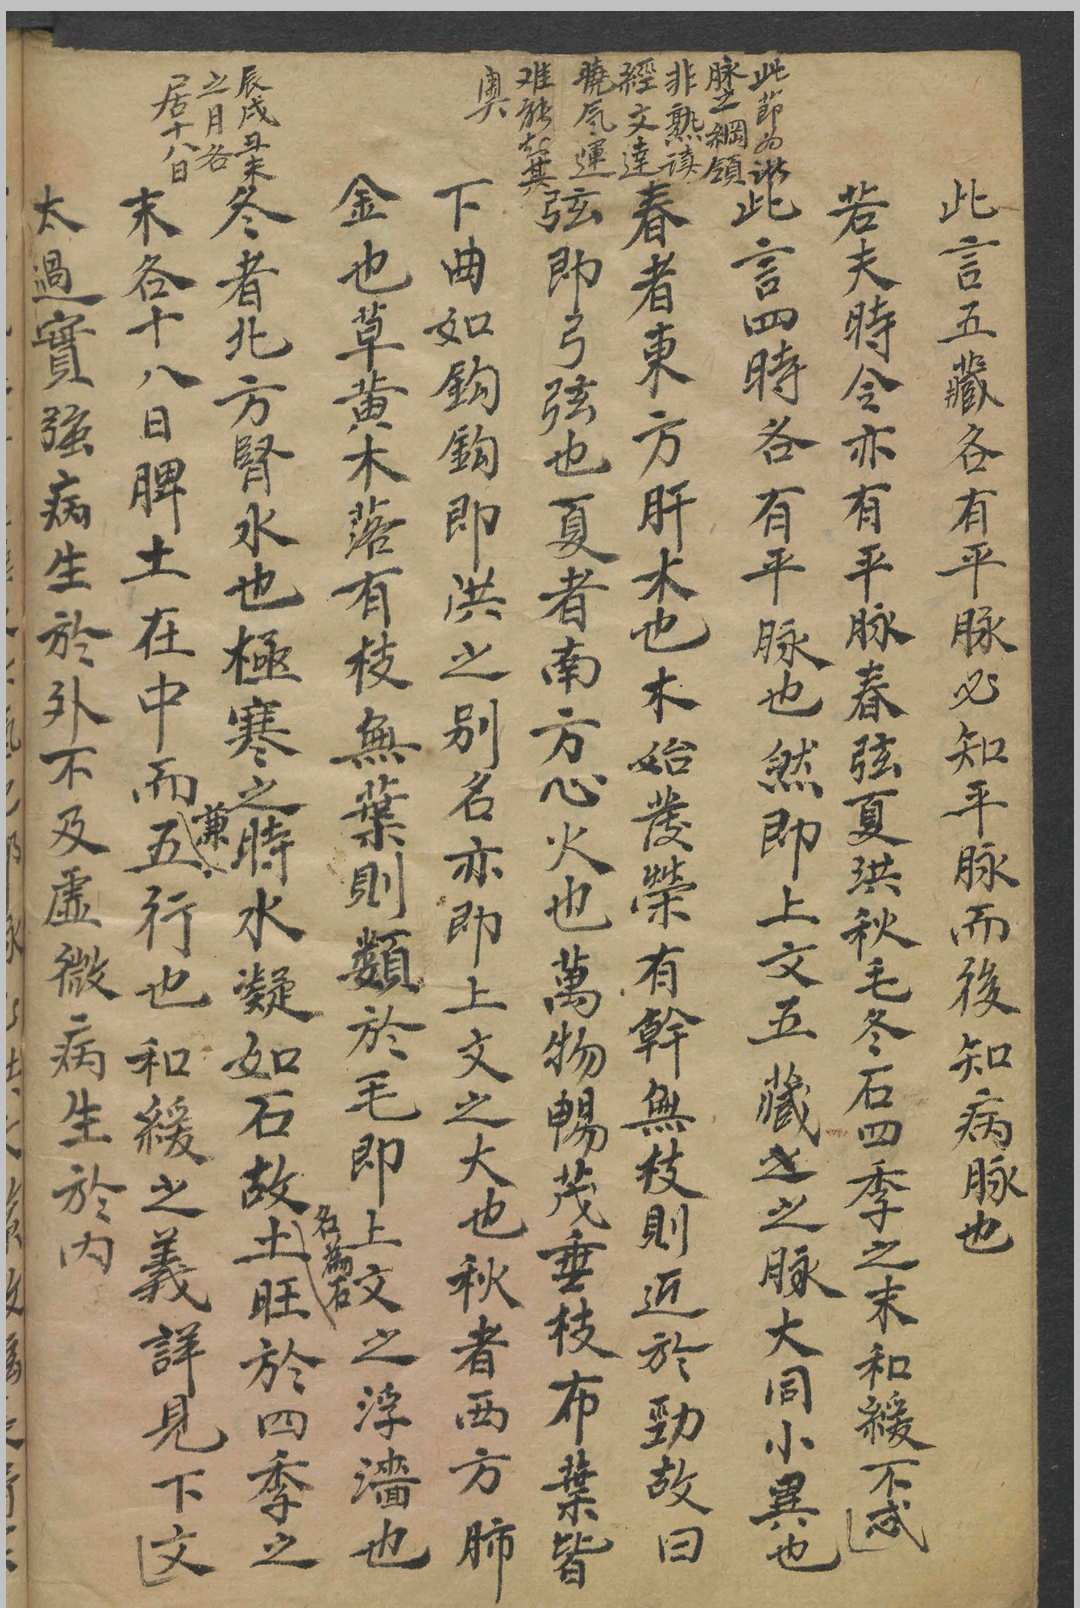 此節為診
脉之綱領
非熟讀
經文達
曉氣運
难能知其
奧
辰戌丑未
之月各
居十八日
此言五藏各有平脉必知平脉而後知病脉也
若夫時令亦有平脉春弦夏洪秋毛冬石四季之末和緩不忒
此言四時各有平脉也然即上文五藏之之脉大同小異也
春者東方肝木也木始發榮有幹無枝則近於勁故曰
弦即弓弦也夏者南方心火也萬物暢茂垂枝布葉皆
下曲如鈎鈎即洪之别名亦即上文之大也秋者西方肺
金也草黄木落有枝無葉則類於毛即上文之浮濇也
冬者北方腎水也極寒之時水凝如石故名為石土旺於四季之
末各十八日脾土在中而兼五行也和緩之義詳見下文
太過實强病生於外不及虛微病生於内